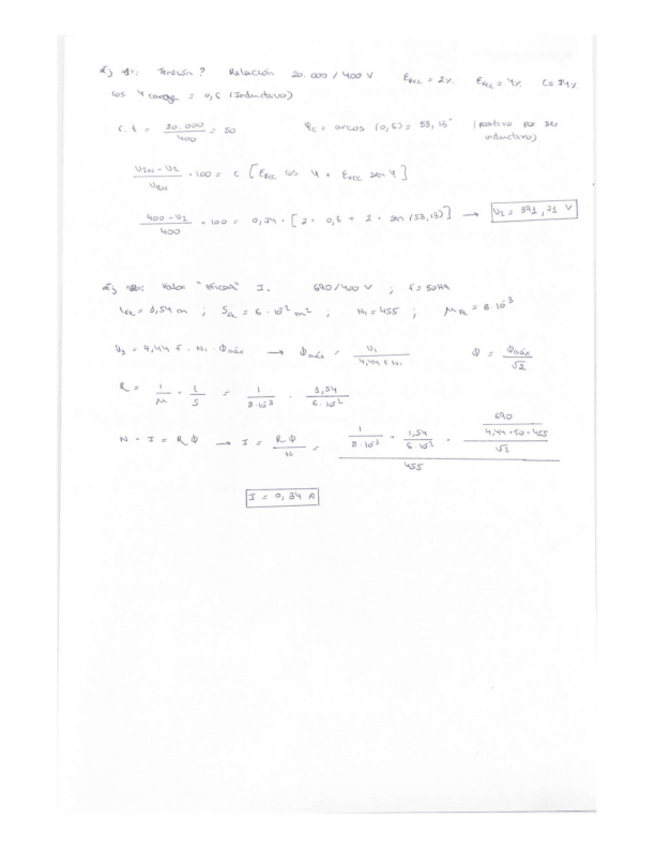 Tensión? Relación 20.000 / 400 V ε_RCC = 2%. ε_XCC = 4%.
cos φ carga = 0,6 (Inductivo)
r.t = 20.000 / 400 = 50 φc = arcos (0,6) = 53,13° (positivo por ser inductivo)
(V2N - V2) / V2N · 100 = c [ε_RCC cos φ + ε_XCC sen φ]
(400 - V2) / 400 · 100 = · [2 · 0,6 + · sen (53,13)] → V2 = 391,21 V
Valor "eficaz" I. 690/400 V ; f = 50 Hz
; = 6·10^-2 m² ; N1 = 455 ; = 8·10^-3
= 4,44 f · N1 · Φmáx → Φmáx = V1 / (4,44 f N1) Φ = Φmáx / √2
R = 1/μ · L/S = 1 / (8·10^-3) · / (6·10^-2)
N · I = R Φ → I = R Φ / N = (1 / (8·10^-3) · 1,54 / (6·10^-2) · (690 / (4,44·50·455)) / √2) / 455
I = 0,34 A